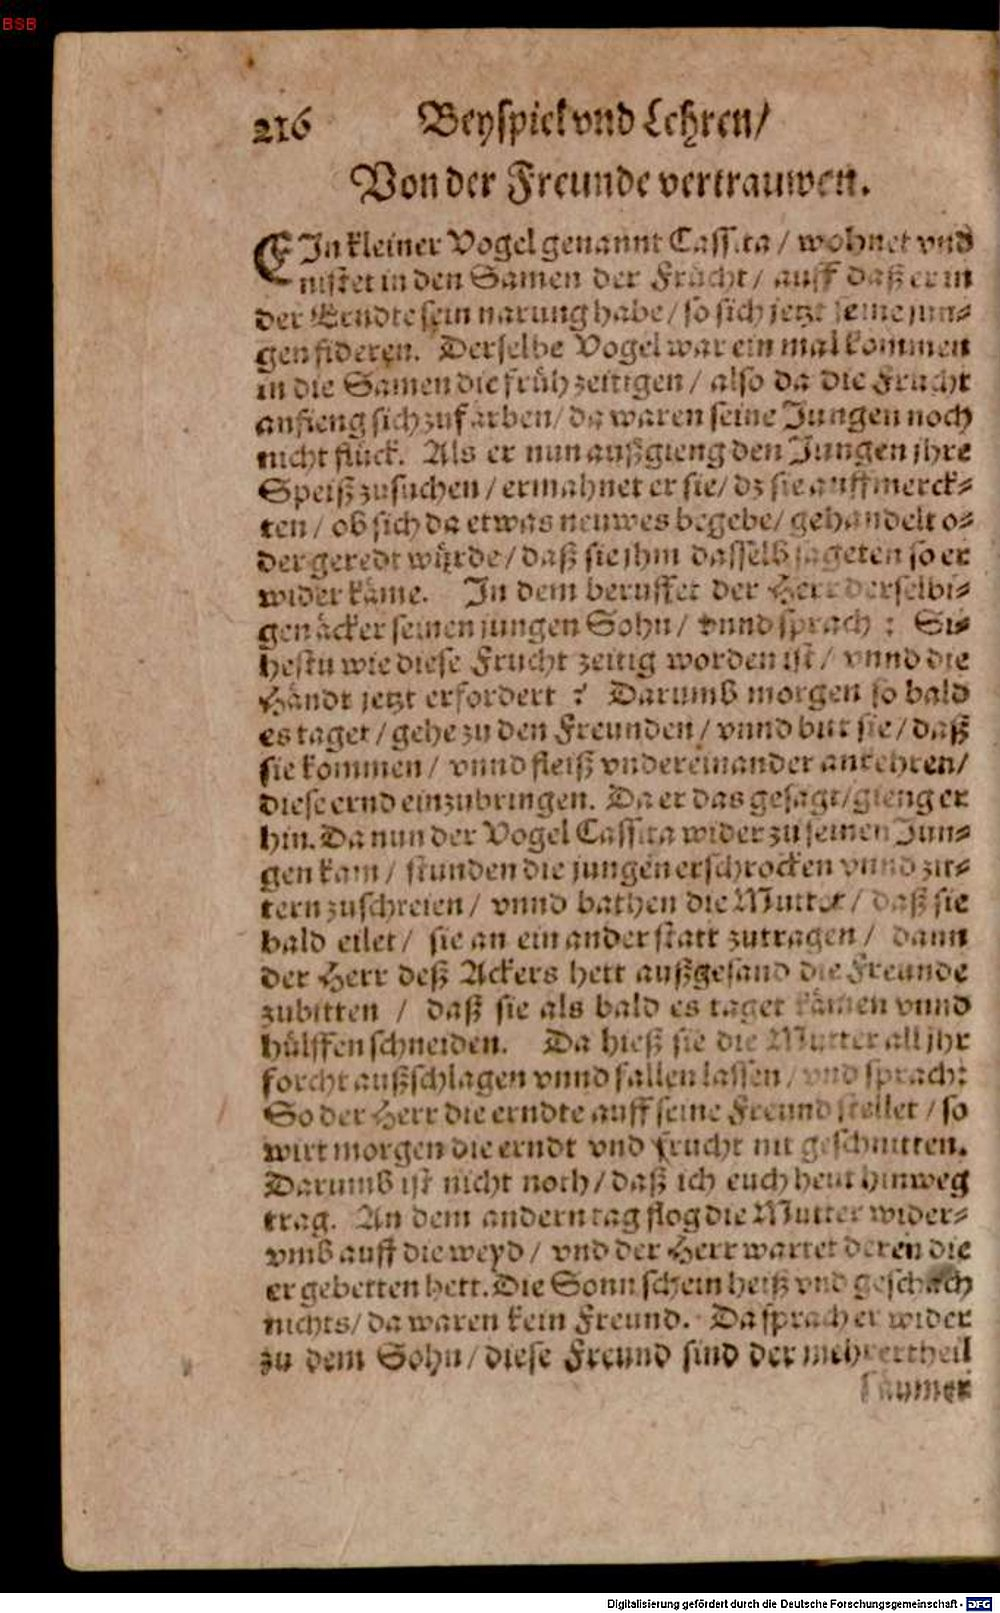 BSB
216 Beyspiel vnd Lehren/
Von der Freunde vertrauwen.
EIn kleiner Vogel genannt Cassita / wohnet vnd
nistet in den Samen der Frücht / auff daß er in
der Erndte sein narung habe / so sich jetzt seine jun-
gen fideren. Derselbe Vogel war ein mal kommen
in die Samen die früh zeitigen / also da die Frucht
anfieng sich zuf arben / da waren seine Jungen noch
nicht flück. Als er nun außgieng den Jungen jhre
Speiß zusuchen / ermahnet er sie / dz sie auffmerck-
ten / ob sich da etwas neuwes begebe / gehandelt o-
der geredt würde / daß sie jhm dasselb sageten so er
wider käme. In dem beruffet der Herr derselbi-
gen äcker seinen jungen Sohn / vnnd sprach : Si-
hestu wie diese Frucht zeitig worden ist / vnnd die
Händt jetzt erfordert ? Darumb morgen so bald
es taget / gehe zu den Freunden / vnnd bitt sie / daß
sie kommen / vnnd fleiß vndereinander ankehren /
diese ernd einzubringen. Da er das gesagt / gieng er
hin. Da nun der Vogel Cassita wider zu seinen Jun-
gen kam / stunden die jungen erschrocken vnnd zit-
tern zuschreien / vnnd bathen die Mutter / daß sie
bald eilet / sie an ein ander statt zutragen / dann
der Herr deß Ackers hett außgesand die Freunde
zubitten / daß sie als bald es taget kämen vnnd
hülffen schneiden. Da hieß sie die Mutter all jhr
forcht außschlagen vnnd fallen lassen / vnd sprach:
So der Herr die erndte auff seine Freund stellet / so
wirt morgen die erndt vnd frucht nit geschnitten.
Darumb ist nicht noth / daß ich euch heut hinweg
trag. An dem andern tag flog die Mutter wider-
vmb auff die weyd / vnd der Herr wartet deren die
er gebetten hett. Die Sonn schein heiß vnd geschach
nichts / da waren kein Freund. Da sprach er wider
zu dem Sohn / diese Freund sind der mehrertheil
säumer
Digitalisierung gefördert durch die Deutsche Forschungsgemeinschaft - DFG